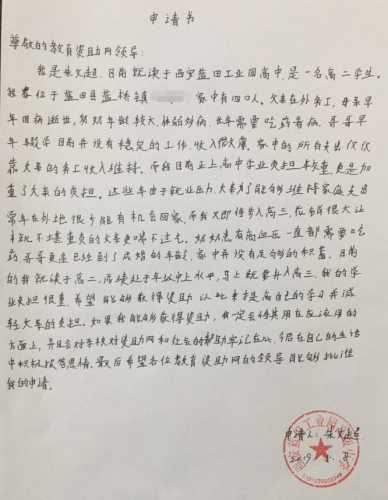 申请书
尊敬的教育资助网领导：
我是朱文超，目前就读于西安蓝田工业园高中，是一名高二学生。
我家位于蓝田县蓝桥镇 家中有四口人。父亲在外务工，母亲早
年因病逝世，奶奶年龄较大，体弱多病，长年需要吃药看病，哥哥早
年辍学目前并没有稳定的工作，收入很少，家中的所有支出仅仅
靠父亲的务工收入维持。而我目前正上高中学业负担较重，更是加
重了父亲的负担。这些年由于就业压力，父亲为了能够维持家庭支出
常年在外地很少能有机会回家，而我又即将步入高三，应销很大让
本就不堪重负的父亲更喘不过气，奶奶患有高血压一直都需要吃
药哥哥更是已经到了成婚的年龄，家中并没有足够的积蓄。目前
的我就读于高二，成绩处于年级中上水平，马上就要升入高三，我的学
业负担很重，希望能够获得资助以此来提高自己的学习并减
轻父亲的负担。如果我能够获得资助，我一定会将其用在应该用的
方面上，并且会对学校对资助网和社会的帮助牢记在心，今后在自己的生活
中积极报答恩情。最后希望各位教育资助网的领导能够批准
我的申请。
申请人：朱文超
2019.